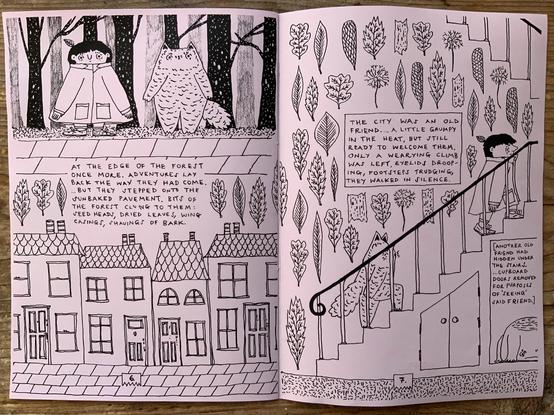 AT THE EDGE OF THE FOREST
ONCE MORE. ADVENTURES LAY
BACK THE WAY THEY HAD COME.
...BUT THEY STEPPED ONTO THE
SUNBAKED PAVEMENT, BITS OF
THE FOREST CLUNG TO THEM:
SEED HEADS, DRIED LEAVES, WING
CASINGS, SHAVINGS OF BARK.
6.
THE CITY WAS AN OLD
FRIEND... A LITTLE GRUMPY
IN THE HEAT, BUT STILL
READY TO WELCOME THEM,
ONLY A WEARYING CLIMB
WAS LEFT. EYELIDS DROOP-
ING, FOOTSTEPS TRUDGING,
THEY WALKED IN SILENCE.
[ANOTHER OLD
FRIEND HAD
HIDDEN UNDER
THE STAIRS.
...CUPBOARD
DOORS REMOVED
FOR PURPOSES
OF 'SEEING'
SAID FRIEND.]
7.